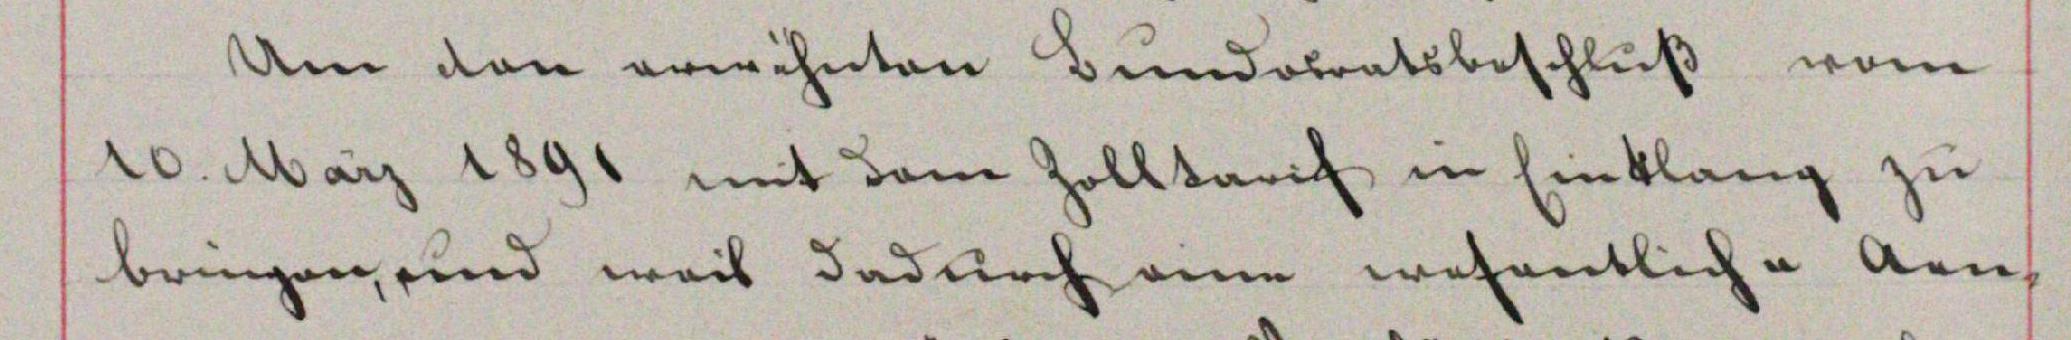 Um den erwähnten Bundesratsbeschluß vom
10. März 1891 mit dem Zolltarif in Einklang zu
bringen, und weil dadurch eine wesentliche Aen-